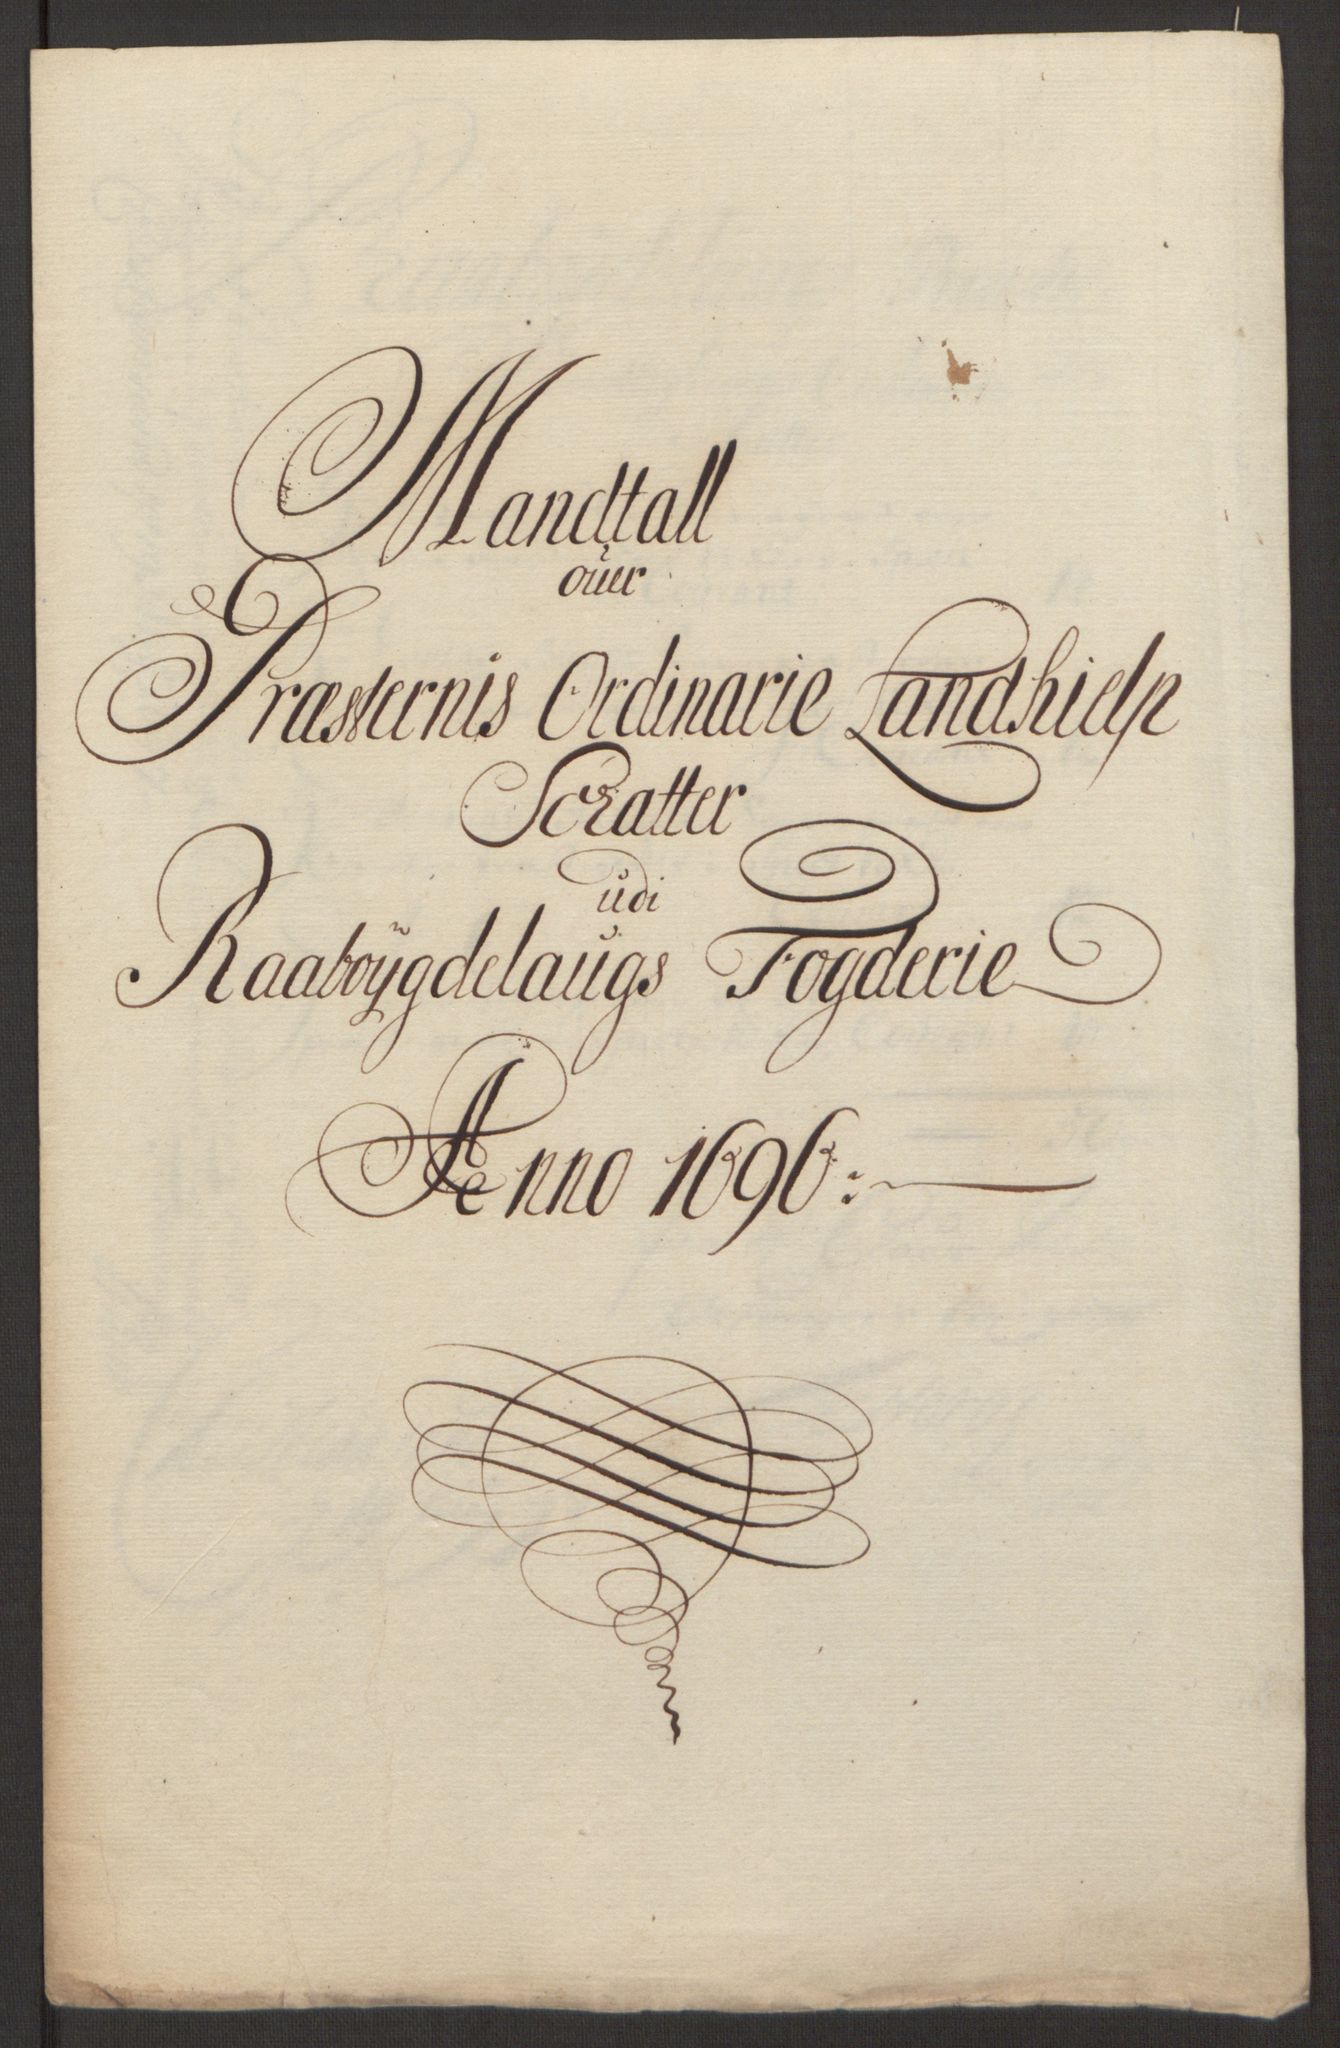 Mandtall
ofuer
Præsternis Ordinarie Landhielp
Schatter
udi
Raabøygdelaugs Fogderie
Anno 1696: